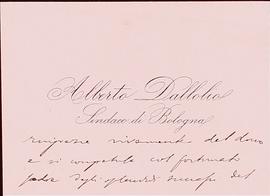 Alberto Dallolio
Sindaco di Bologna
ringrazia vivamente del dono
e si congratula col fortunato
padre degli splendidi del